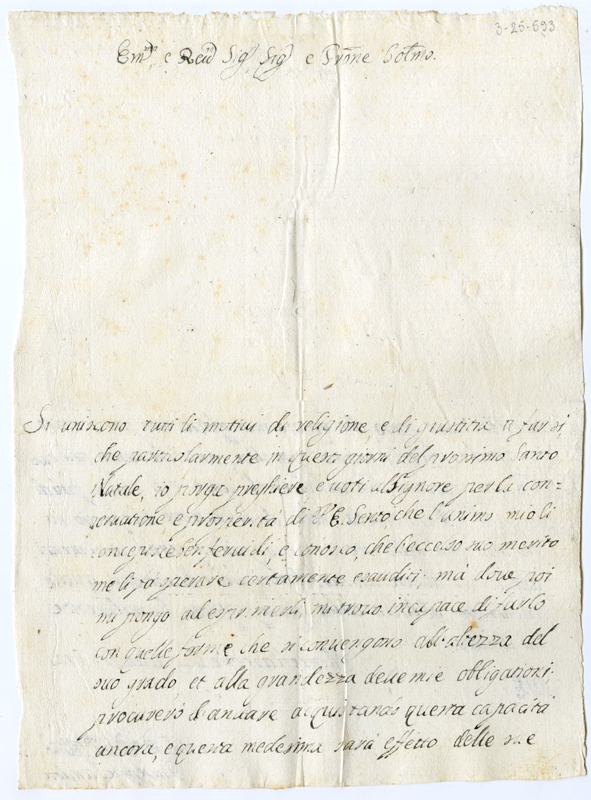 3-25-693
Em.mo e Reu.mo Sig.r Sig.r e Prone Col.mo
Si uniscono tutti li motiui di religione, e di giustitia à farsi,
che particolarmente in questi giorni del prossimo Santo
Natale, io porga preghiere e uoti al Signore per la con=
seruatione e prosperità di V. E. Sento che l'animo mio li
concepisce ben feruidi, e conosco, che l'eccelso suo merito
me li fà sperare certamente esauditi; mà doue poi
mi pongo ad esprimerli, mi trouo incapace di farlo
con quelle forme che si conuengono all'altezza del
suo grado, et alla grandezza delle mie obligationi.
procurerò d'andare acquistando questa capacità
ancora, e questa medesima sarà effetto delle sue